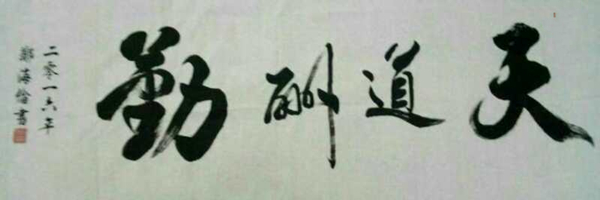 天道酬勤
二零一六年
鄭海倫書